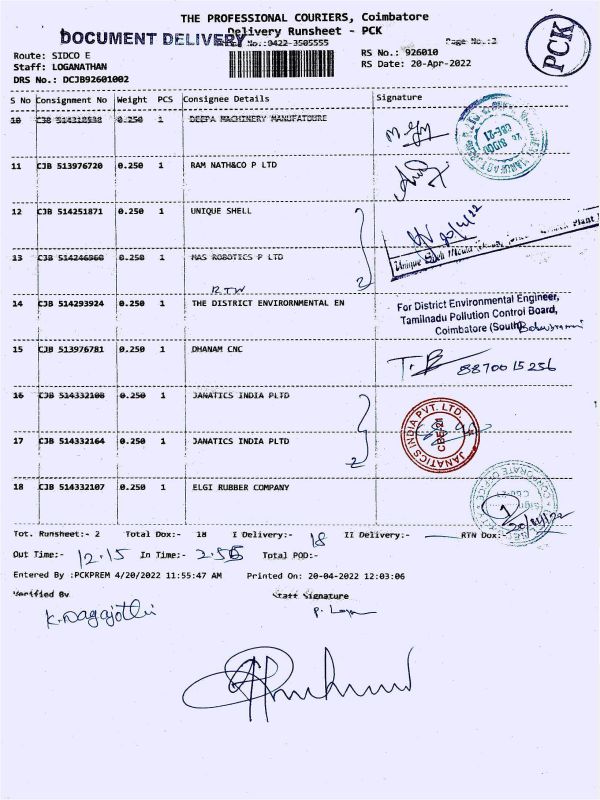 THE PROFESSIONAL COURIERS, Coimbatore
DOCUMENT DELIVERY
Delivery Runsheet - PCK
No.:0422-3505555
Page No.:2
PCK
Route: SIDCO E
RS No.: 926010
Staff: LOGANATHAN
RS Date: 20-Apr-2022
DRS No.: DCJB92601002
S No Consignment No Weight PCS Consignee Details Signature
10 CJB 514318538 0.250 1 DEEPA MACHINERY MANUFATOURE
11 CJB 513976720 0.250 1 RAM NATH&CO P LTD
12 CJB 514251871 0.250 1 UNIQUE SHELL
20/4/22
Unique Shell
13 CJB 514246960 0.250 1 MAS ROBOTICS P LTD
14 CJB 514293924 0.250 1 THE DISTRICT ENVIRORNMENTAL EN
For District Environmental Engineer,
Tamilnadu Pollution Control Board,
Coimbatore (South)
15 CJB 513976781 0.250 1 DHANAM CNC
T.B 8870015256
16 CJB 514332108 0.250 1 JANATICS INDIA PLTD
JANATICS INDIA PVT. LTD. CBE-21
17 CJB 514332164 0.250 1 JANATICS INDIA PLTD
18 CJB 514332107 0.250 1 ELGI RUBBER COMPANY
Tot. Runsheet:- 2 Total Dox:- 18 I Delivery:- 18 II Delivery:- RTN Dox:-
Out Time:- 12.15 In Time:- Total POD:-
Entered By :PCKPREM 4/20/2022 11:55:47 AM Printed On: 20-04-2022 12:03:06
Verified By Staff Signature
K. Nagajothi